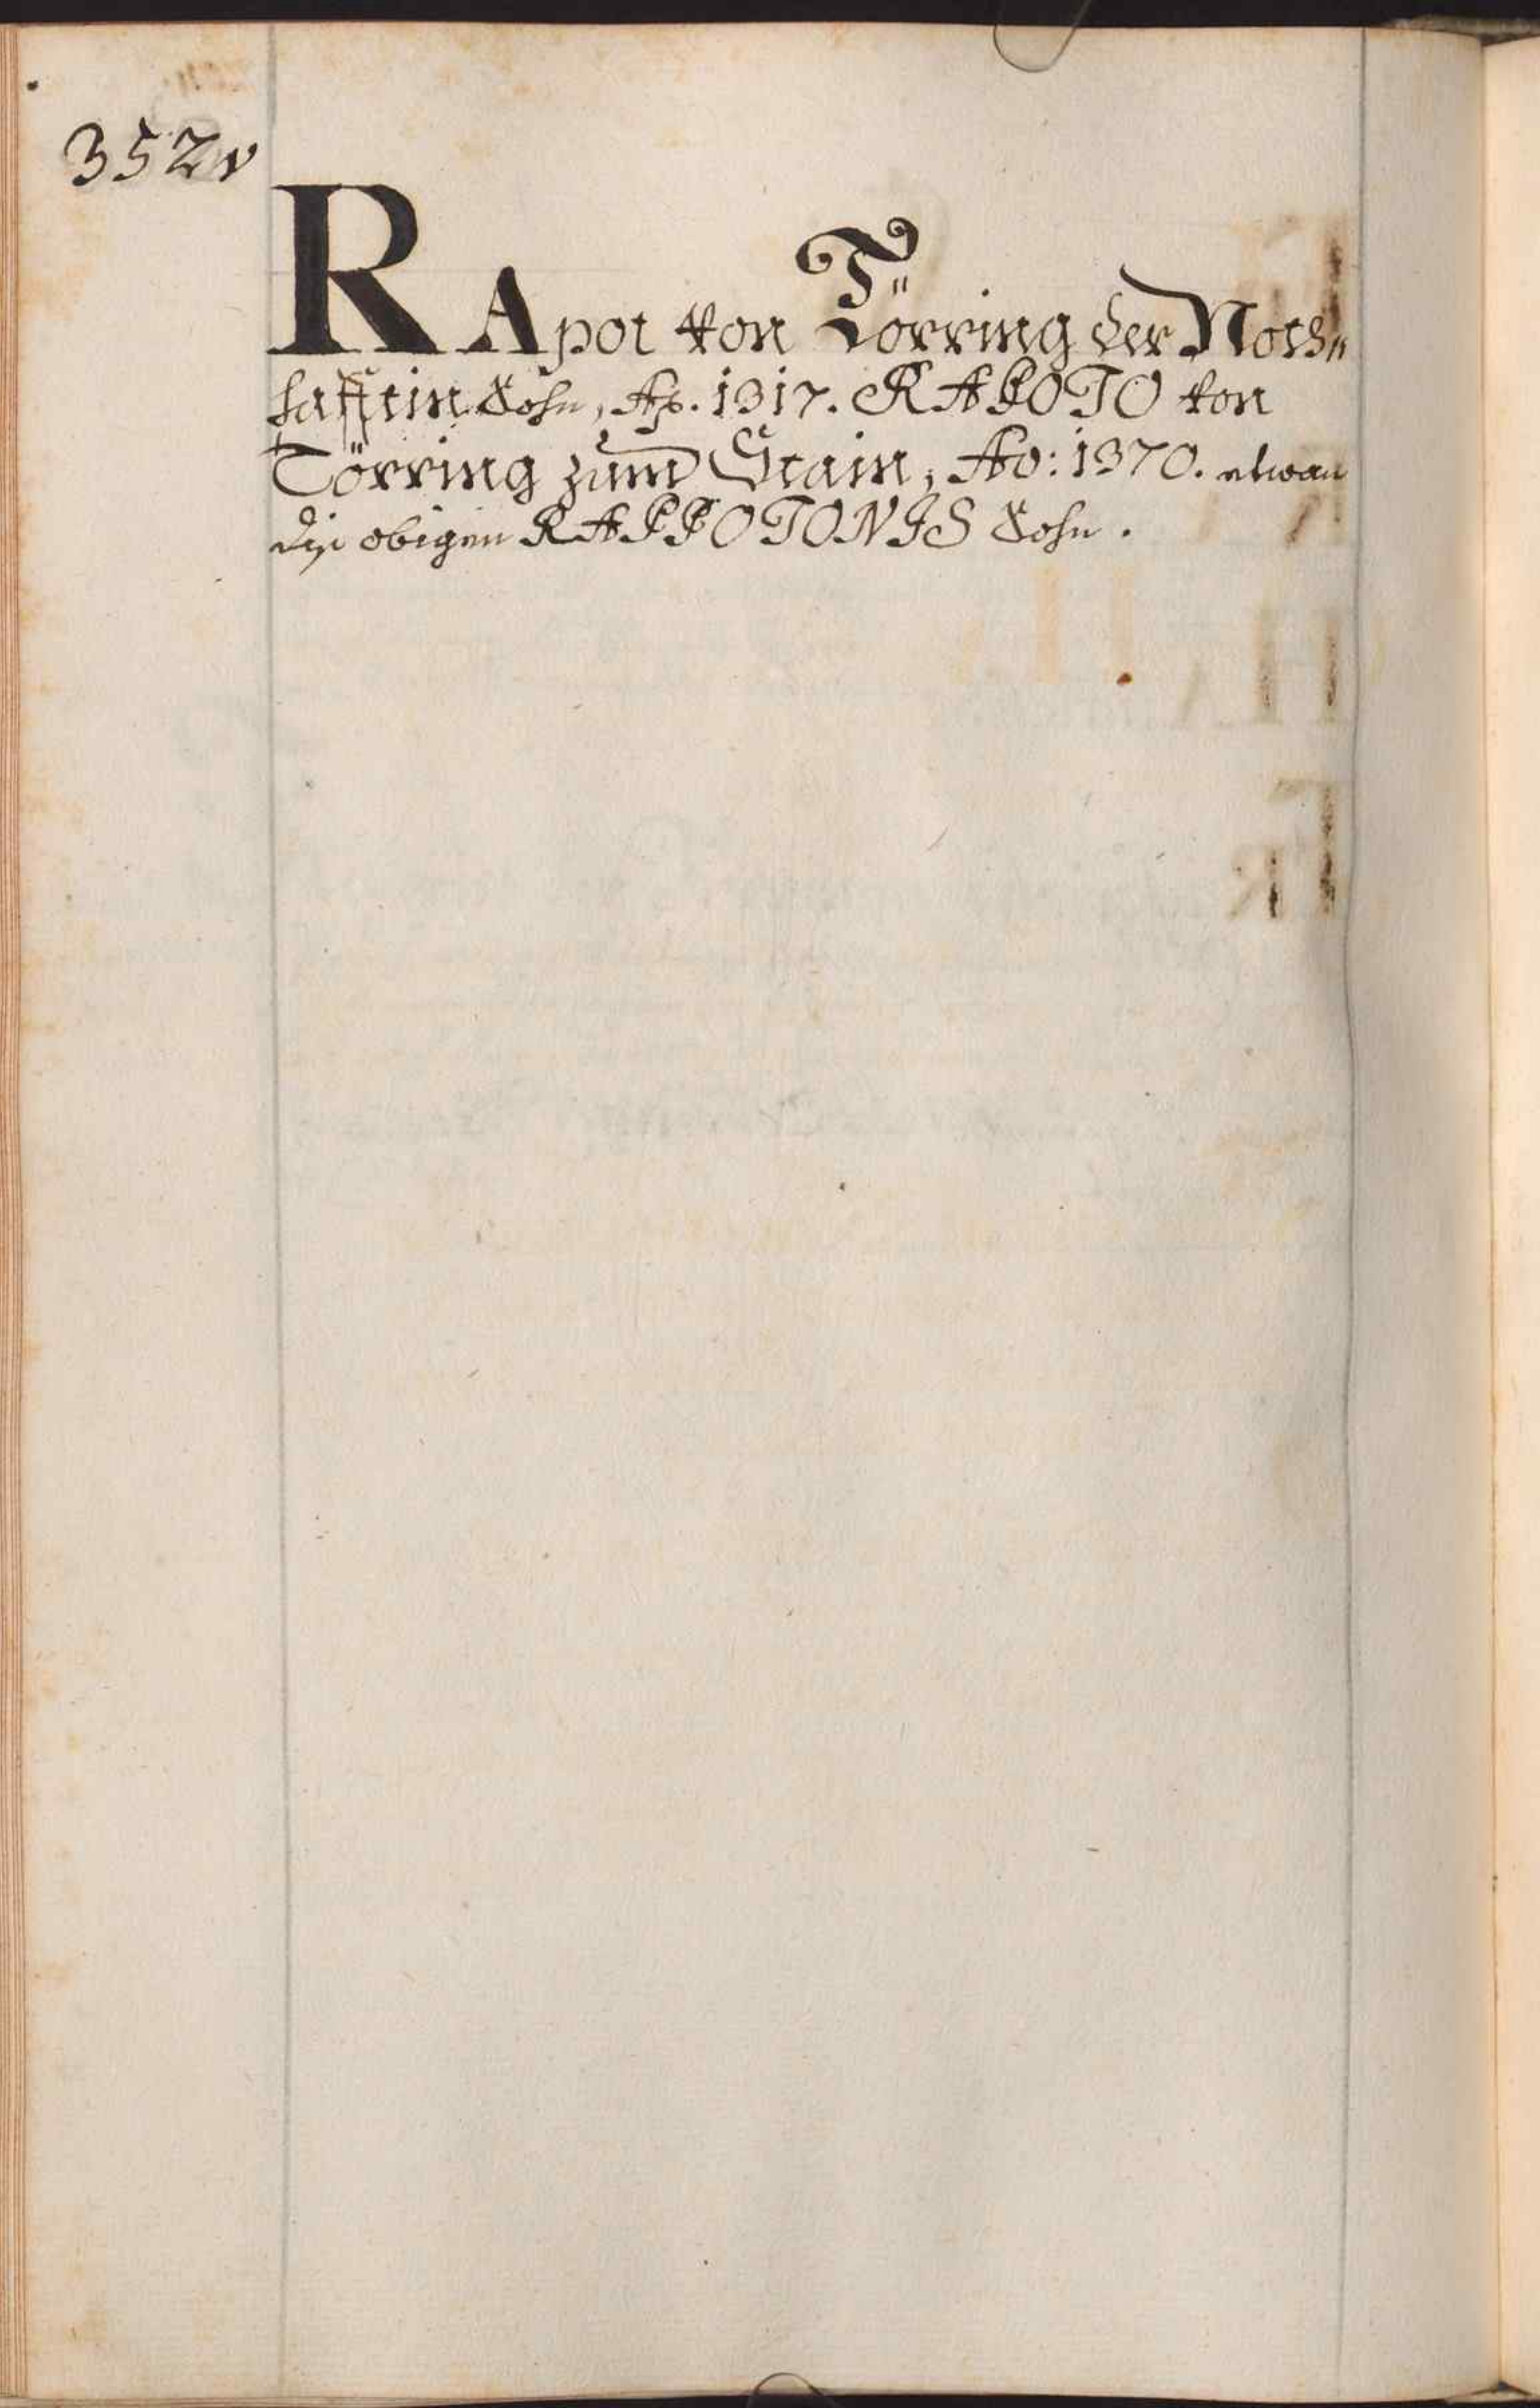 352v
RApot von Törring der Noth„
hafftin Sohn, Ao. 1317. RAPOTO von
Törring zum Stain, Ao: 1370. etwan
diß obigen RAPPOTONIS Sohn.